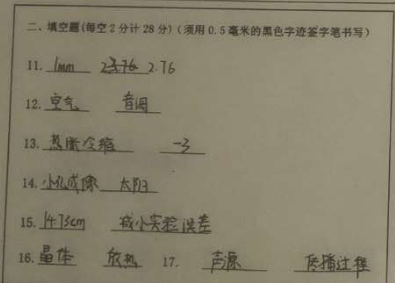 二、填空题(每空2分计28分)(须用0.5毫米的黑色字迹签字笔书写)
11. 1mm 2.76 2.76
12. 空气 音调
13. 热胀冷缩 -3
14. 小孔成像 太阳
15. 14.73cm 减小实验误差
16. 晶体 放热 17. 声源 传播过程